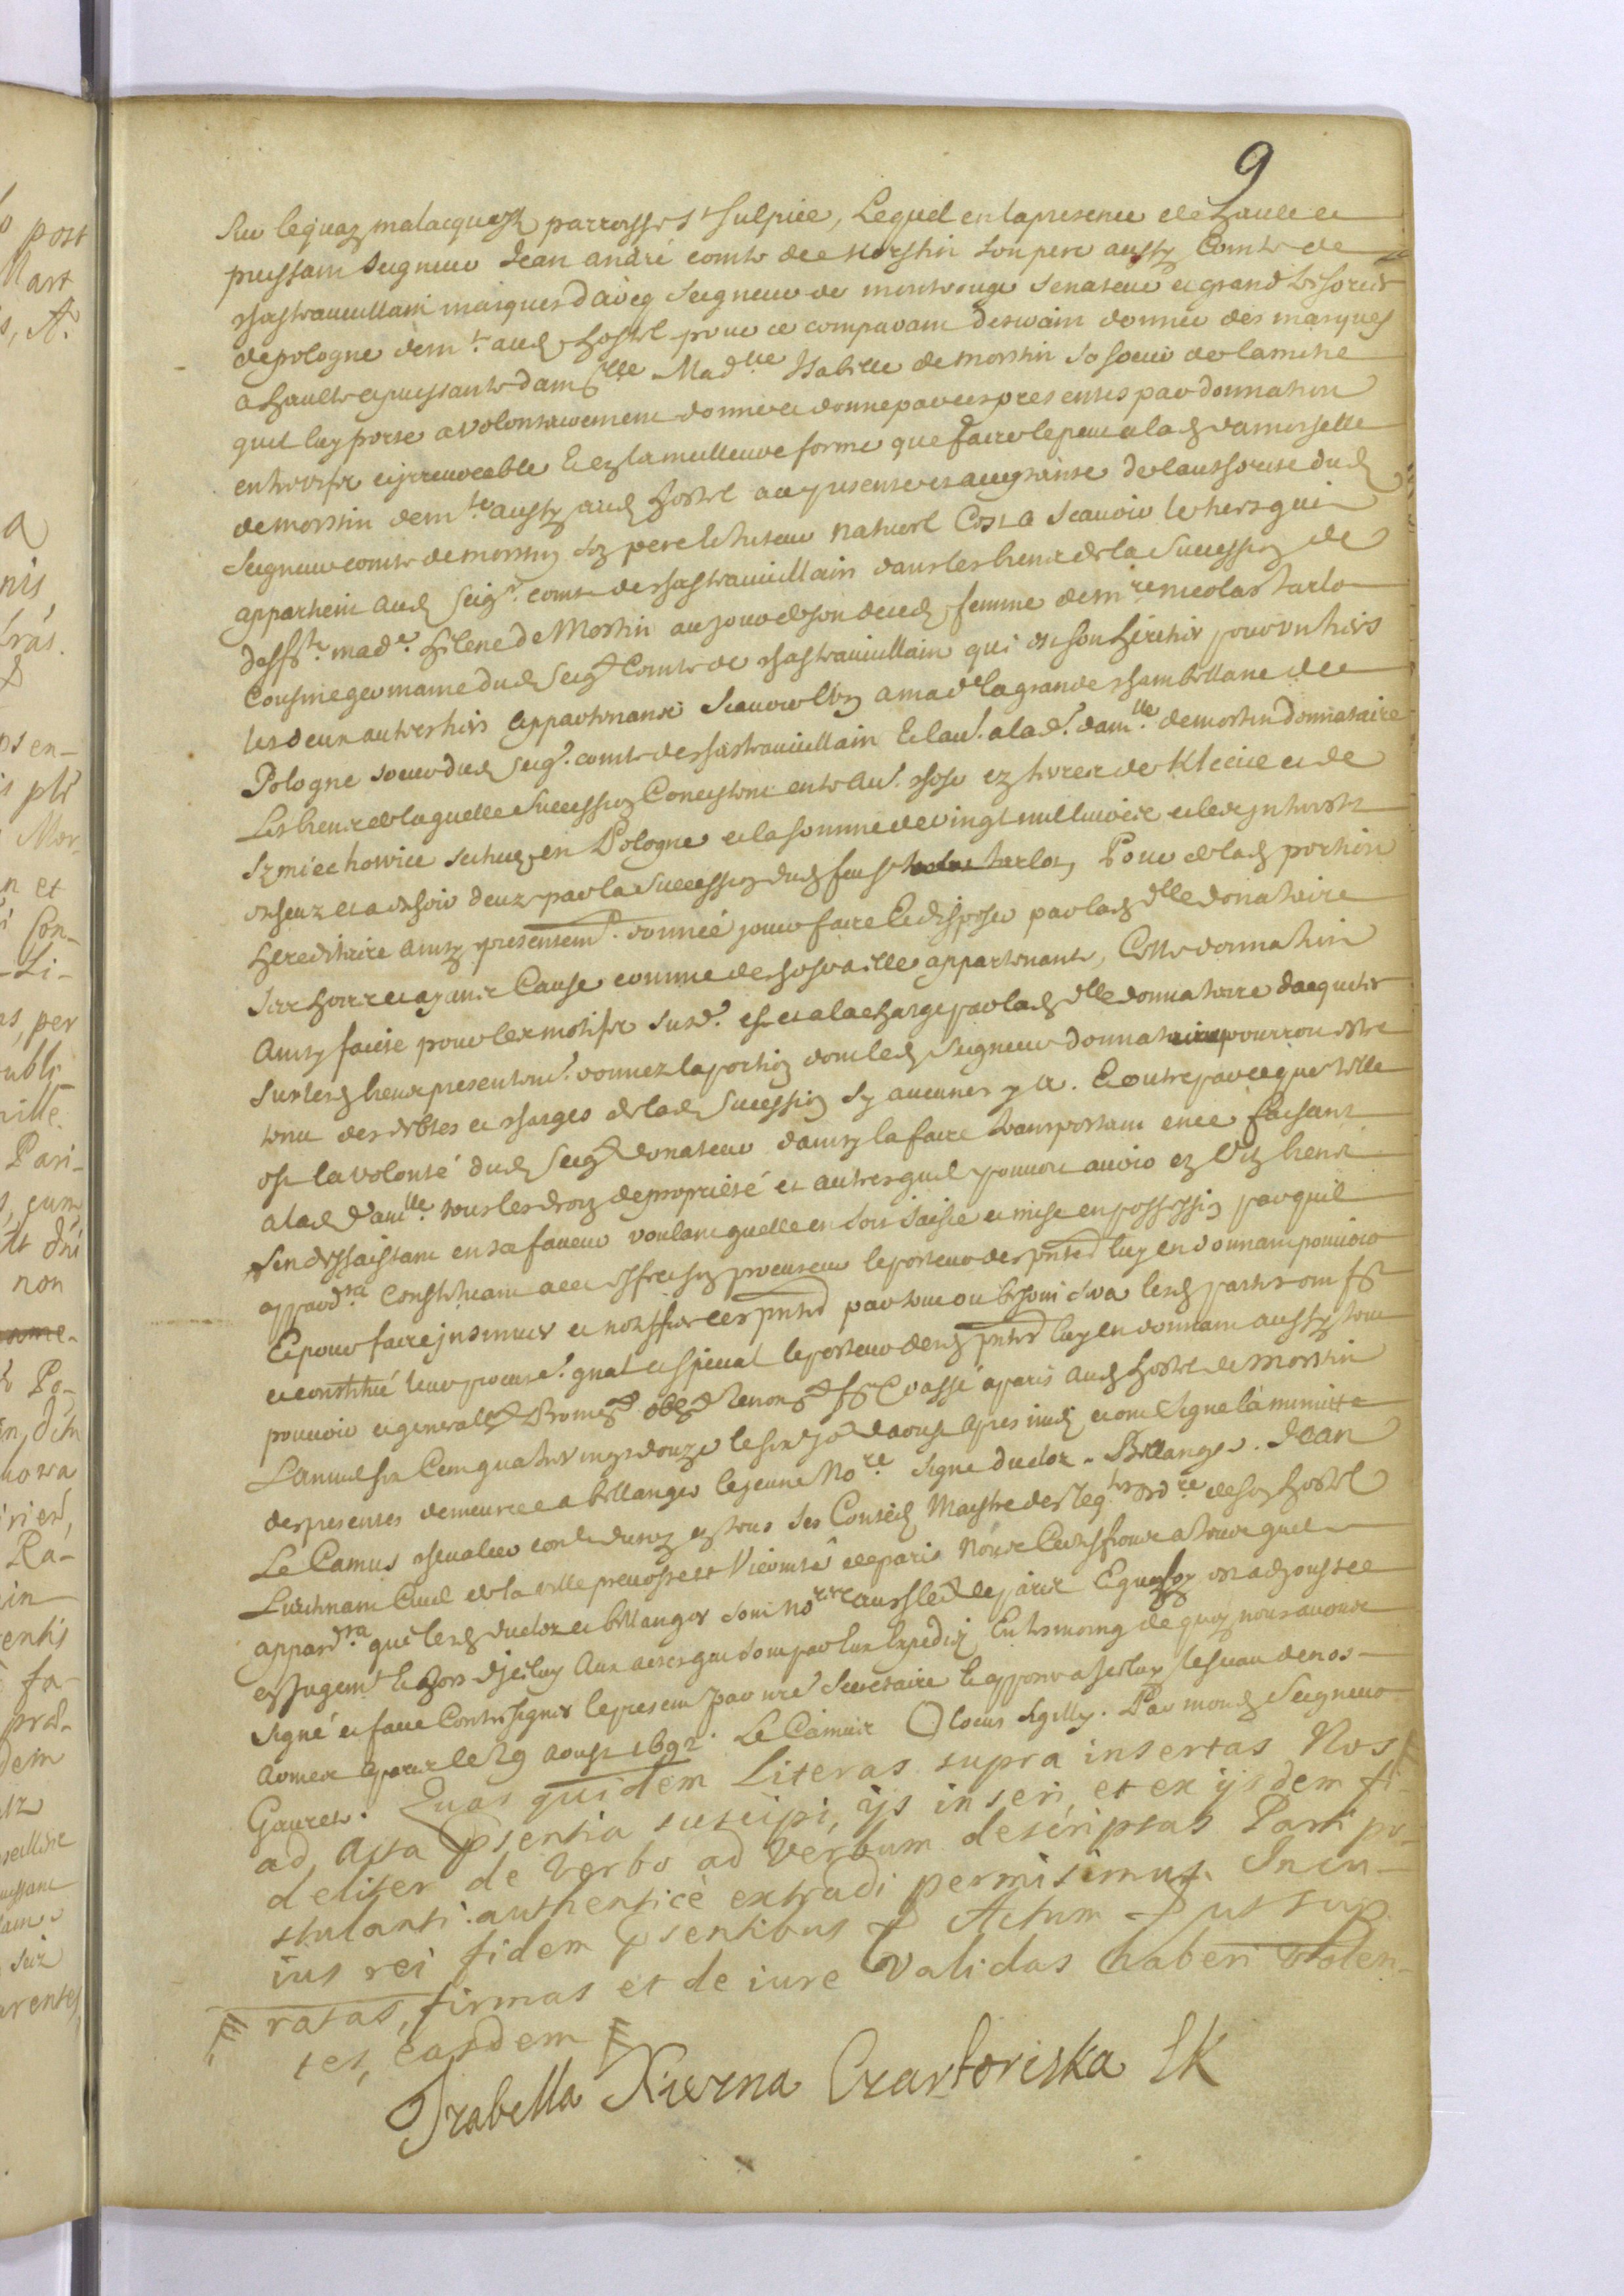 9
Sur le quay malacquest parroisse St Sulpice, Lequel en la presence de haut et
puissant Seigneur Jean andré comte de Morstin son pere aussy Comte de
chasteauvillain marquis d'arcq Seigneur de montrouge Senateur et grand tresorier
de pologne demt aud hostel pour ce comparant desirant donner des marques
a haulte et puissante damlle Madlle Isabelle de morstin sa soeur de lamitié
quil luy porte a volontairement donné et donne par ces presentes par donnation
entre vifs et irrevocable et en la meilleure forme que faire se peut a lad damoiselle
de morstin demte aussy aud hostel a ce presente et acceptante de lauthorité dud
Seigneur comte de morstin son pere et tuteur naturel Cest a Scavoir le tiers qui
appartient aud Seigr. comte de chasteauvillain dans les biens de la Succession de
deffte. made. helene de Morstin au jour de son deced femme de mre nicolas tarlo
Cousine germaine dud Seigr Comte de chasteauvillain qui est son heritier pour un tiers
les deux autres tiers appartenans Scavoir lun a made la grande chambellane de
Pologne soeur dud Seigr. comte de chasteauvillain Et lau. a lad. damlle. de morstin donnataire
Les biens de laquelle Succession Consistent entre au. chose ez terres de Kliecie et de
Szmiechowice scituez en Pologne et la somme de vingt mil livres et les interests
escheuz et a escheoir deuz par la Succession dud feu Sr tarlo, Pour de lad portion
hereditaire ainsy presentemt. donnée jouir faire Et disposer par lad dlle donataire
Ses hoirs et ayans Cause comme de chose a elle appartenante, Cette donnation
Ainsy faicte pour les motifs susd. est et a la charge par lad dlle donnataire dacquitter
sur lesd biens presentemt. donnez la portion dont led Seigneur donnateur pourroit estre
tenu des debtes et charges de lad Succession Sy aucunes y a. Et outre parce que telle
est la volonté dud Seigr donateur dainsy la faire transportant en ce faisant
a lad Damlle. tous les droits de proprieté et autres quil pouvoit avoir en Iceux biens
Sen dessaisissant en sa faveur voulant quelle en soit saisie et mise en possession par quil
appardra Constituant a cet effect son procureur le porteur des pntes luy en donnant pouvoir
Et pour faire insinuer et notiffier ces pntes par tout ou besoin sera lesd parties ont fst
et constitué leur procur. gnal et special le porteur desd pntes luy en donnant aussy tout
pouvoir et generalt Promett oblt Renont fst Passé a paris aud hostel de Morstin
Lan mil six Cens quatre vingt douze le six jor daoust apres midy et ont Signé la minutte
des presentes demeurée a bellanger le jeune Nore. Signé ducloz. Bellanger. Jean
Le Camus chevalier conler du roy en tous ses Conseils Maistre des Reqtes ordre de son hostel
Lieutenant Civil de la ville prevosté et Vicomté de paris Nous Certiffions a tous quil
appardra que lesd ducloz et bellanger sont Nores au chlet de paris Et que foy est adjoustée
en Jugemt Et hors dicelluy Aux actes qui sont par Eux Expediez En tesmoing de quoy nous avons
signé et faict Contresigner le present par nre Secretaire Et apposer a Icelluy le sceau de nos
armes a paris le 29 aoust 1692. Le Camus locus Sigilly. Par mond Seigneur
Gauret. Quas quidem Literas supra insertas Nos,
ad Acta Psentia suscipi, ijs inseri et ex ijsdem fi-
deliter de Verbo ad Verbum descriptas Parti po-
stulanti authenticè extradi permisimus. In cu-
ius rei fidem Psentibus Actum ut sup
ratas, firmas et de iure Validas haberi Volen-
tes, easdem
Izabella Xiezna Czartoriska SK
post
Mart
A.
a
nis
en-
Mor-
n et
Con-
Li-
per
ubli-
ville.
Pari-
cum
non
Po-
Ra-
in
entis
fa-
dem